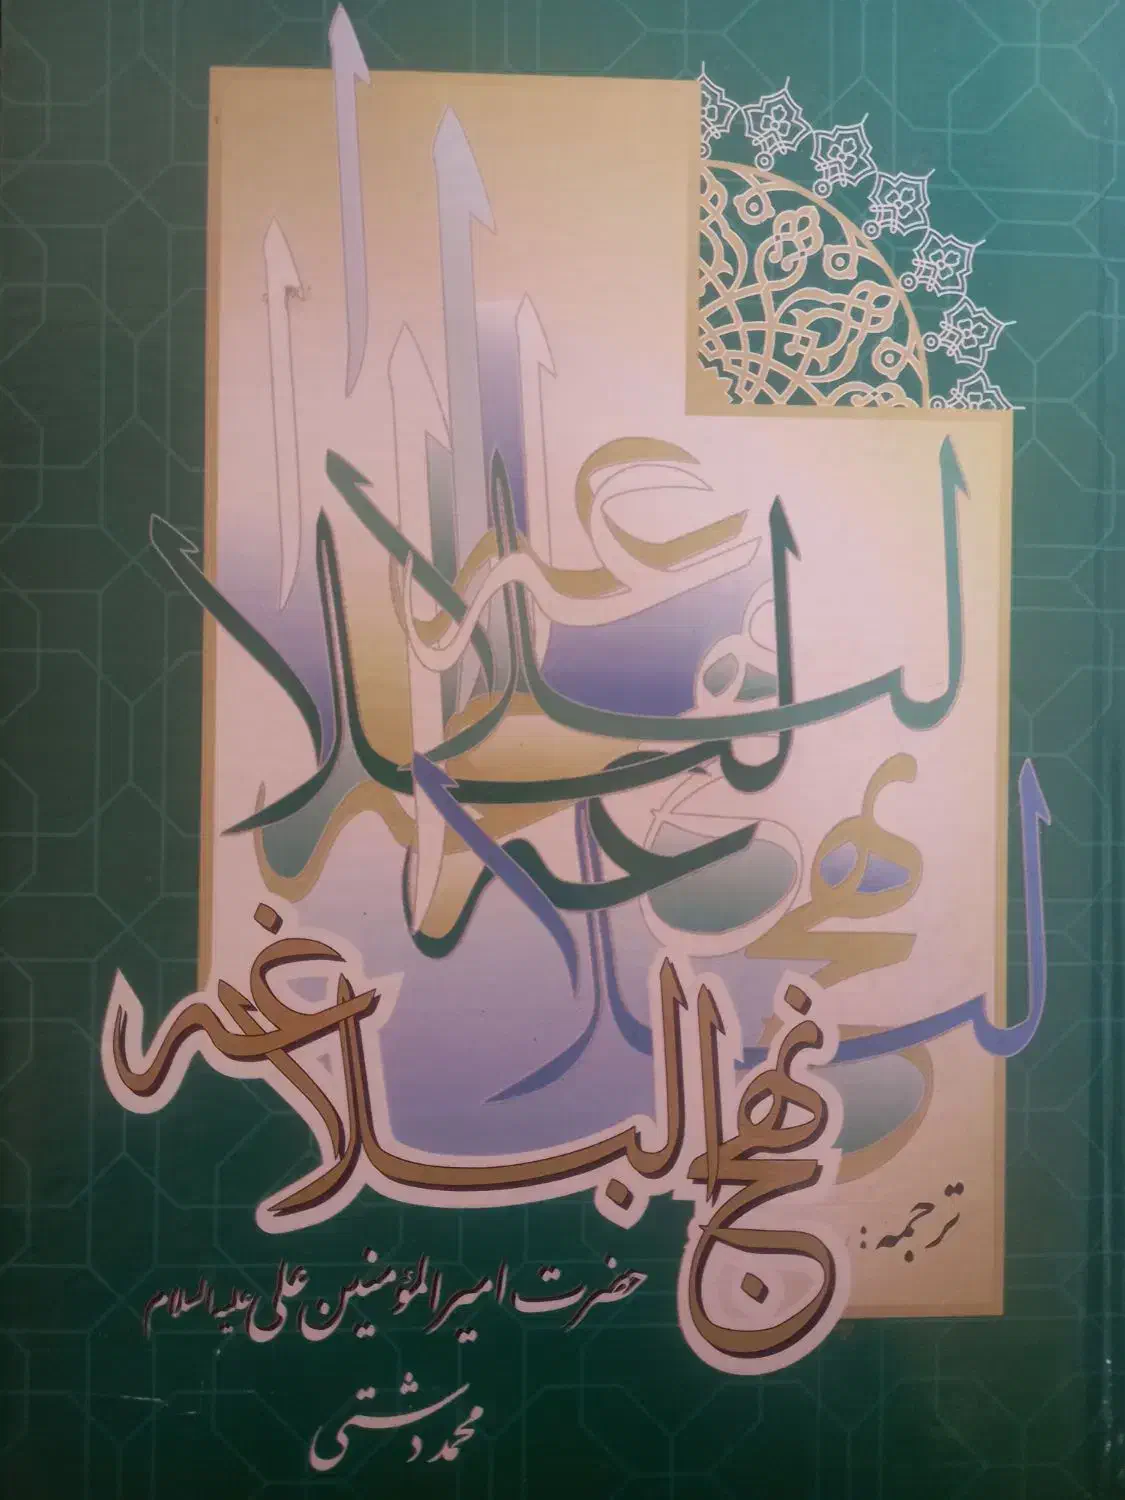 ترجمه:
نهج البلاغه
حضرت امیرالمؤمنین علی علیه السلام
محمد دشتی